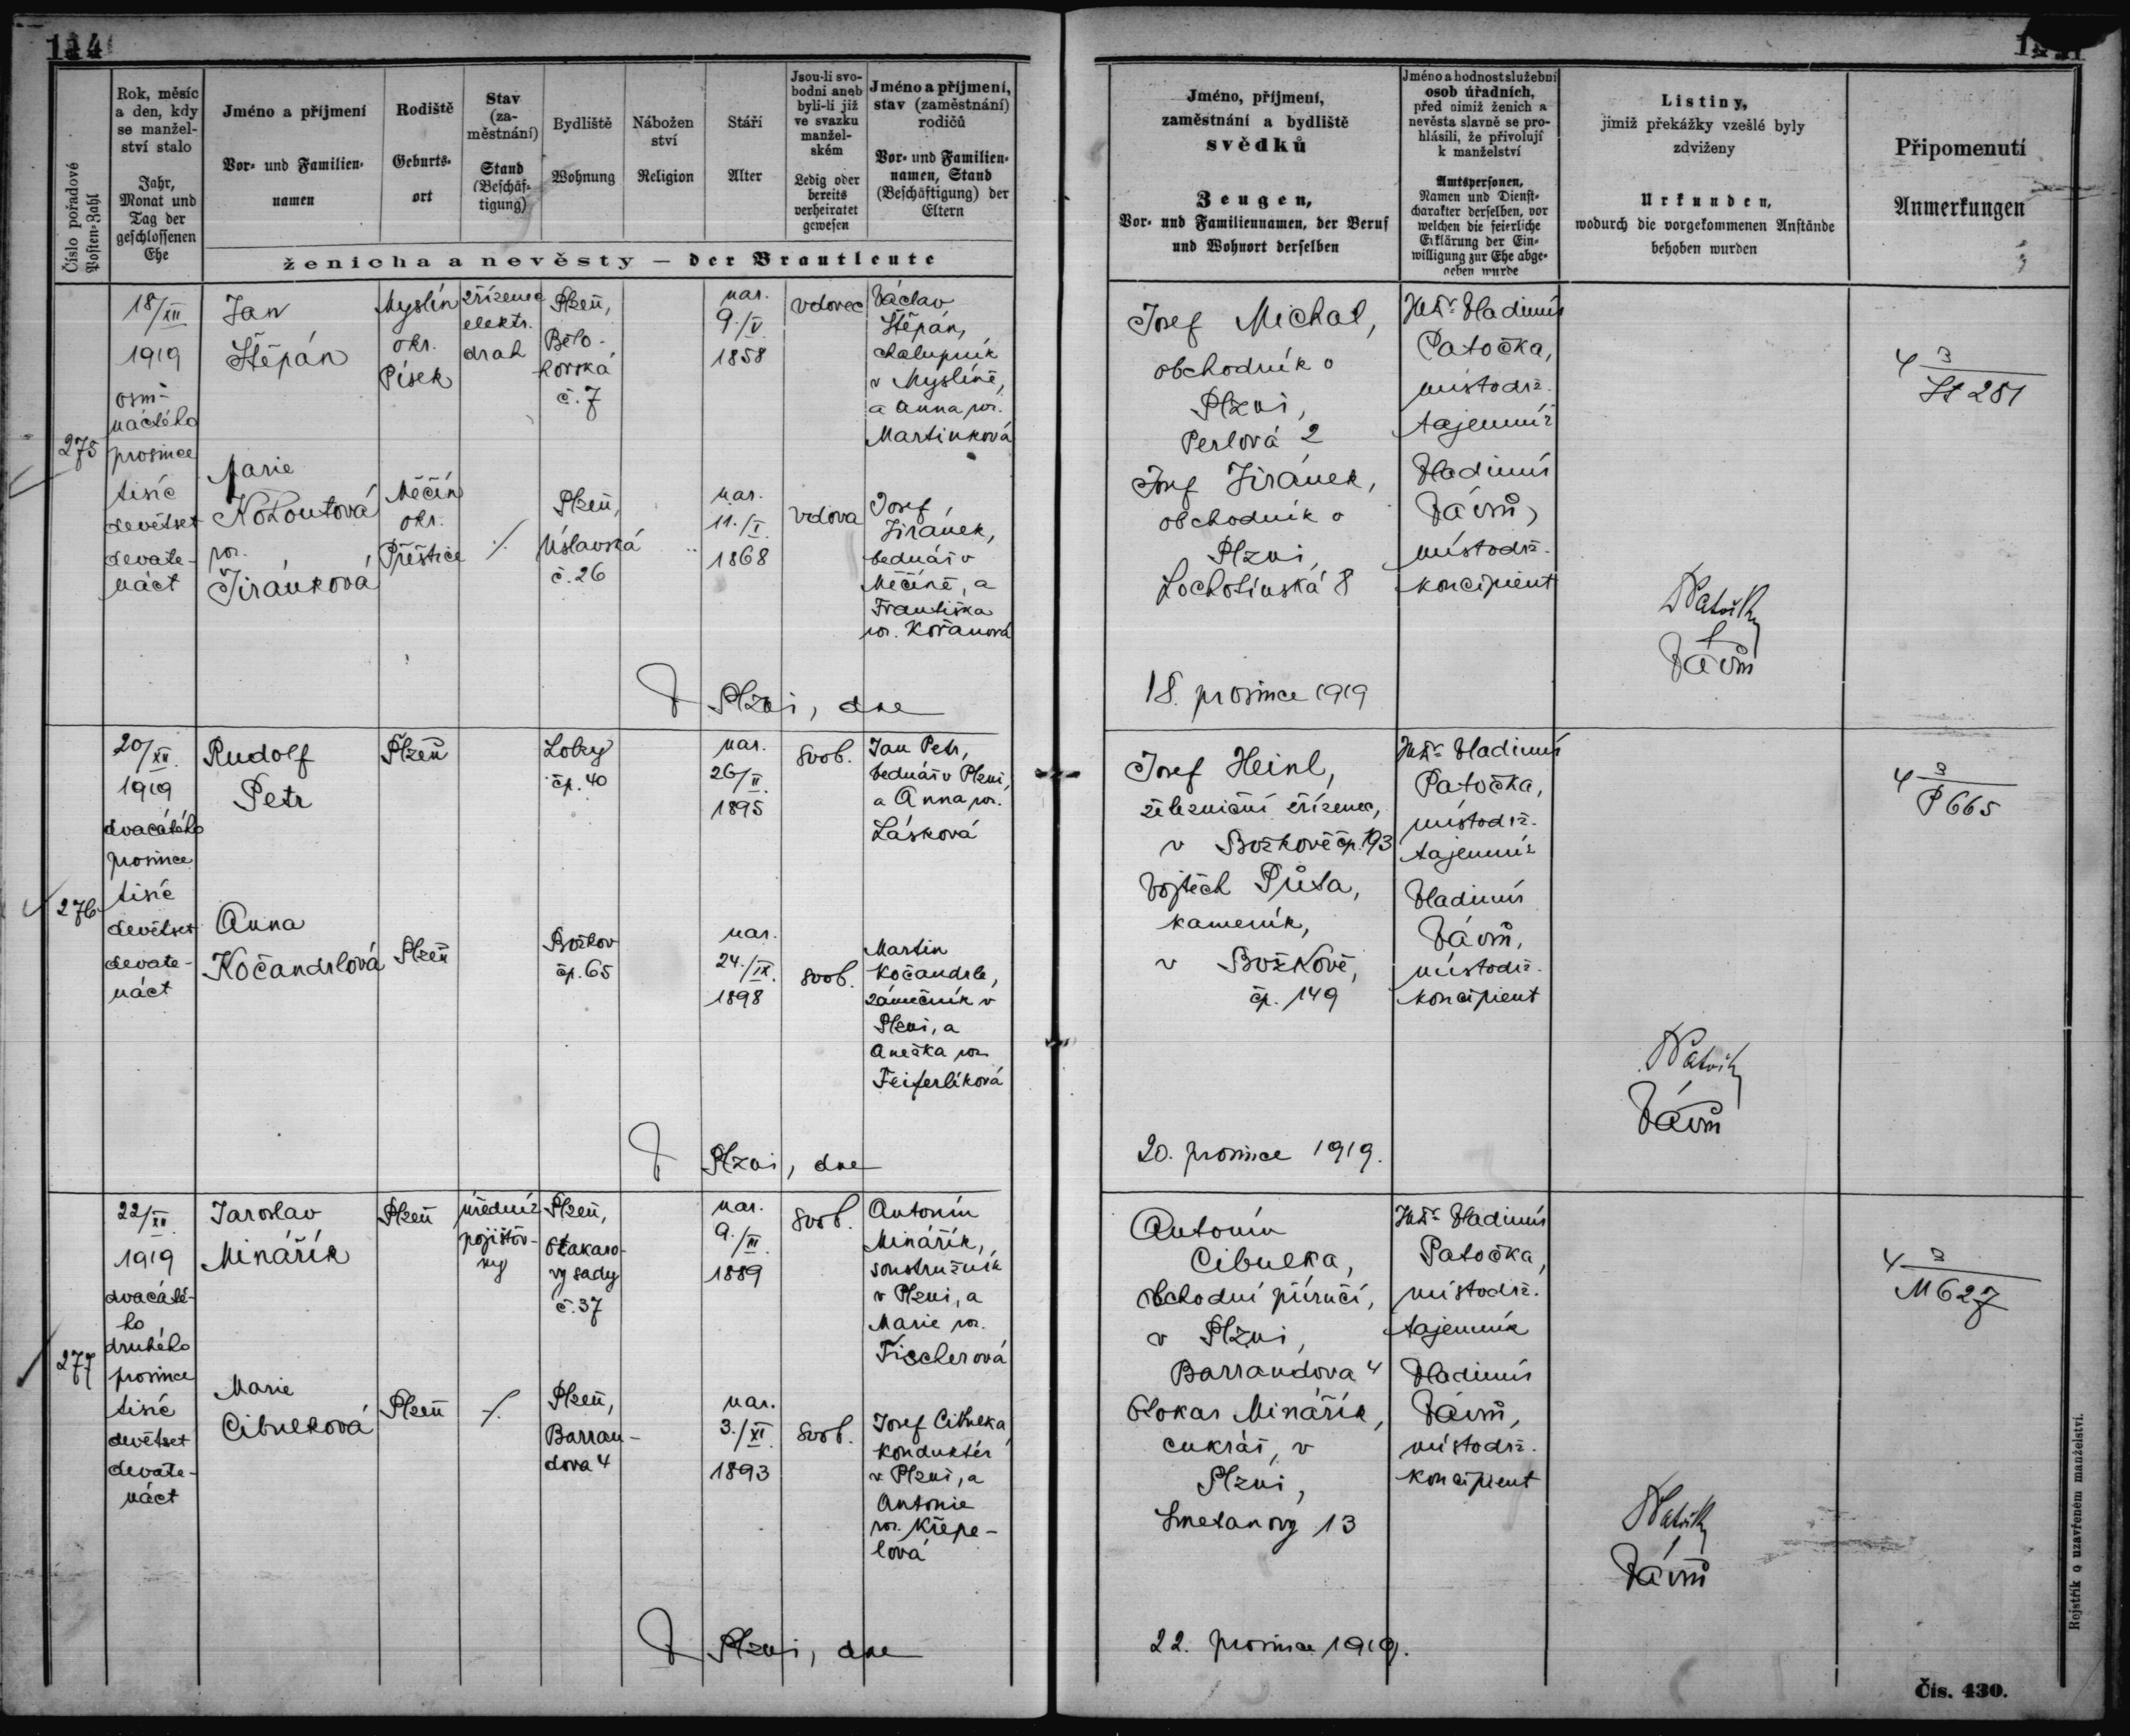 114
Číslo pořadové
Posten-Zahl
Rok, měsíc
a den, kdy
se manžel-
ství stalo
Jahr,
Monat und
Tag der
geschlossenen
Ehe
Jméno a příjmení
Vor- und Familien-
namen
Rodiště
Geburts-
ort
Stav
(za-
městnání)
Stand
(Beschäf-
tigung)
Bydliště
Wohnung
Nábožen
ství
Religion
Stáří
Alter
Jsou-li svo-
bodni aneb
byli-li již
ve svazku
manžel-
ském
Ledig oder
bereits
verheiratet
gewesen
Jméno a příjmení,
stav (zaměstnání)
rodičů
Vor- und Familien-
namen, Stand
(Beschäftigung) der
Eltern
ženicha a nevěsty — der Brautleute
Jméno, příjmení,
zaměstnání a bydliště
svědků
Zeugen,
Vor- und Familiennamen, der Beruf
und Wohnort derselben
Jméno a hodnost služební
osob úřadních,
před nimiž ženich a
nevěsta slavně se pro-
hlásili, že přivolují
k manželství
Amtspersonen,
Namen und Dienst-
charakter derselben, vor
welchen die feierliche
Erklärung der Ein-
willigung zur Ehe abge-
geben wurde
Listiny,
jimiž překážky vzešlé byly
zdviženy
Urkunden,
wodurch die vorgekommenen Anstände
behoben wurden
Připomenutí
Anmerkungen
275
18/XII
1919
osm-
náctého
prosince
tisíc
devětset
devate-
náct
Jan
Štěpán
Myslín
okr.
Písek
zřízenec
elektr.
drah
Plzeň,
Bělo-
horská
č. 7
nar.
9./V
1858
vdovec
Václav
Štěpán,
chalupník
v Myslíně,
a Anna roz.
Martínková
Marie
Kohoutová
roz.
Jiránková
Měčín
okr.
Přeštice
./.
Plzeň,
Úslavská
č. 26
nar.
11./I.
1868
vdova
Josef
Jiránek,
bednář v
Měčíně, a
Františka
roz. Kořanová
Josef Michal,
obchodník v
Plzni,
Perlová 2
Josef Jiránek,
obchodník v
Plzni,
Lochotínská 8
JUDr Vladimír
Patočka,
místodrž.
tajemník
Vladimír
Vávrů,
místodrž.
koncipient
Patočka
Vávrů
4 3
Št 281
V Plzni, dne
18. prosince 1919
276
20/XII.
1919
dvacátého
prosince
tisíc
devětset
devate-
náct
Rudolf
Petr
Plzeň
Lobzy
čp. 40
nar.
26/II.
1895
svob.
Jan Petr,
bednář v Plzni,
a Anna roz.
Lásková
Anna
Kočandrlová
Plzeň
Božkov
čp. 65
nar.
24./IX.
1898
svob.
Martin
Kočandrle,
zámečník v
Plzni, a
Anežka roz.
Feiferlíková
Josef Heinl,
železniční zřízenec,
v Božkově čp. 193
Vojtěch Půta,
kameník,
v Božkově,
čp. 149
JUDr Vladimír
Patočka,
místodrž.
tajemník
Vladimír
Vávrů,
místodrž.
koncipient
Patočka
Vávrů
4 3
P 665
V Plzni, dne
20. prosince 1919.
277
22/XII
1919
dvacáté-
ho
druhého
prosince
tisíc
devětset
devate-
náct
Jaroslav
Minářík
Plzeň
úředník
pojišťov-
ny
Plzeň,
Otakaro-
vy sady
č. 37
nar.
9./III.
1889
svob.
Antonín
Minářík,
soustružník
v Plzni, a
Marie roz.
Fischerová
Marie
Cibulková
Plzeň
./.
Plzeň,
Barran-
dova 4
nar.
3./XI.
1893
svob.
Josef Cibulka,
konduktér
v Plzni, a
Antonie
roz. Křepe-
lová
Antonín
Cibulka,
obchodní příručí,
v Plzni,
Barrandova 4
Otokar Minářík,
cukrář, v
Plzni,
Smetanovy 13
JUDr Vladimír
Patočka,
místodrž.
tajemník
Vladimír
Vávrů,
místodrž.
koncipient
Patočka
Vávrů
4 3
M 627
V Plzni, dne
22. prosince 1919.
Rejstřík o uzavřeném manželství.
Čís. 430.